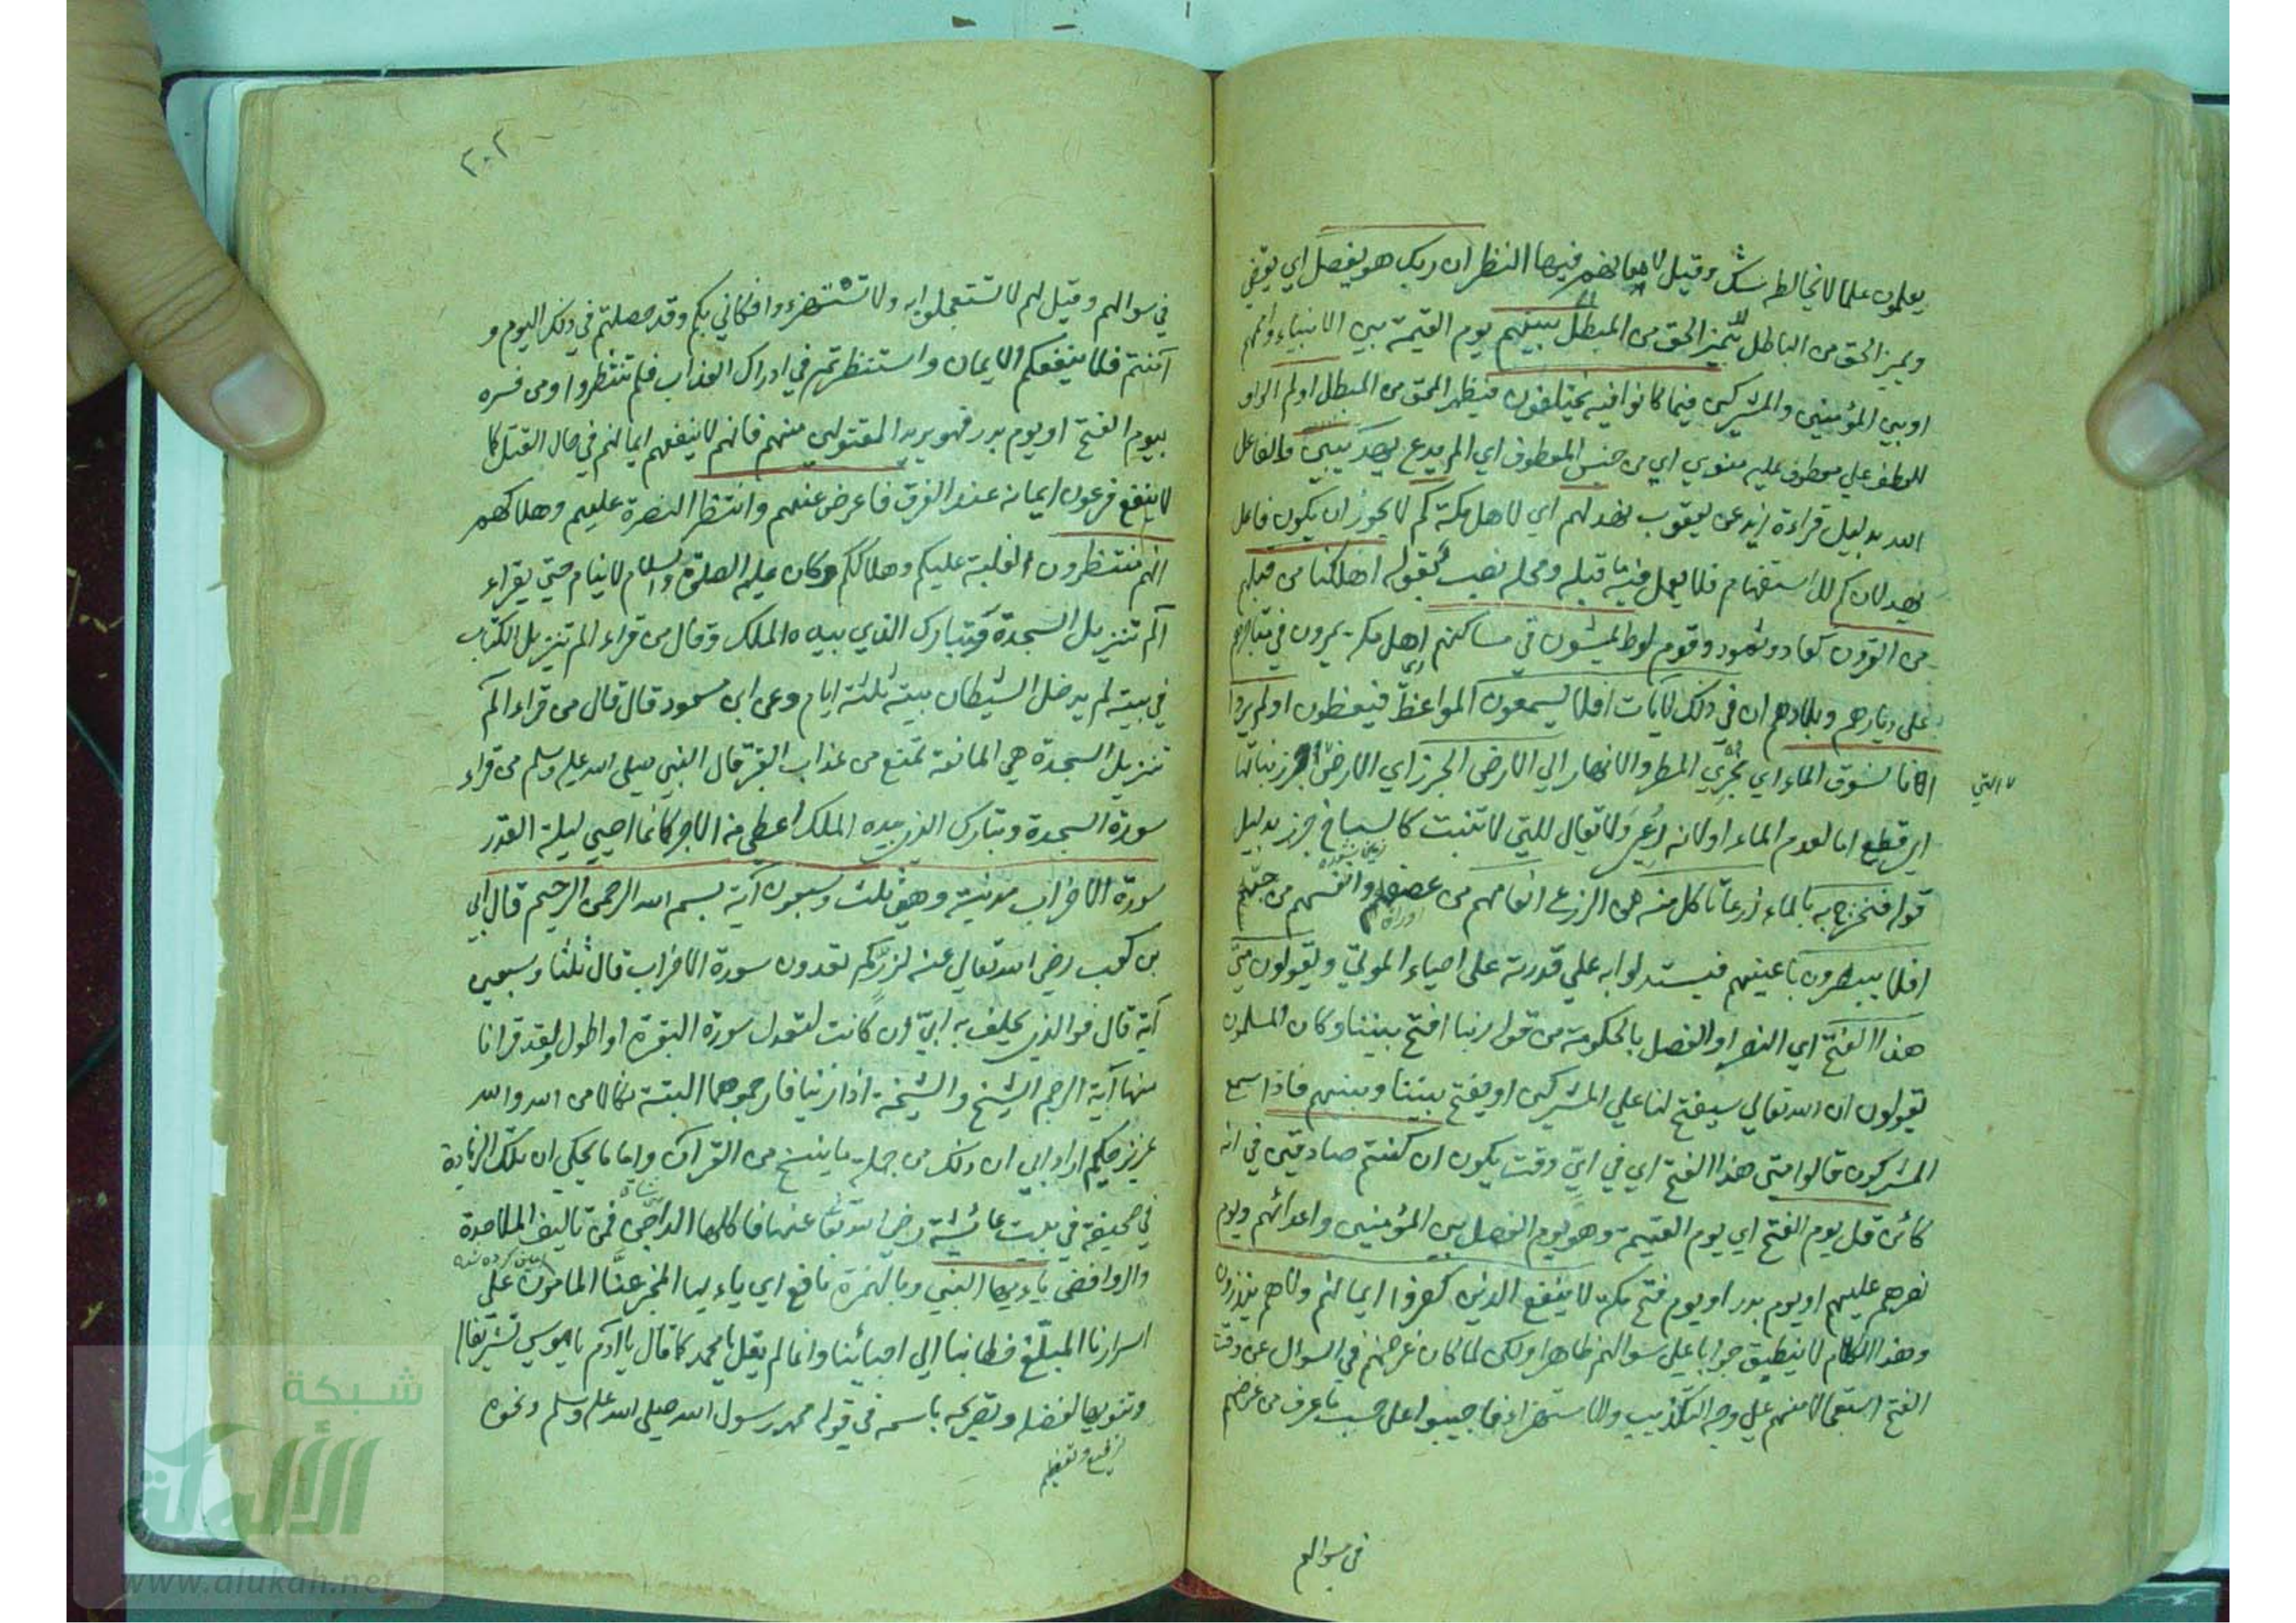 يعلمون علما لا يخالطه شك وقيل فيها النظر ان ربك هو يفصل اي يقضي
ويميز الحق من الباطل من المبطل بينهم يوم القيمة بين الانبياء وامهم
او بين المؤمنين والمشركين فيما كانوا فيه يختلفون فيظهر المحق من المبطل اولم الواو
للعطف علي معطوف عليه منوي اي من جنس المعطوف اي الم يدع يهد يتبين والفاعل
الله بدليل قراءة زيد عن يعقوب نهد لهم اي لاهل مكة كم لا يجوز ان يكون فاعل
يهد لان كم للاستفهام فلا يعمل فيه ما قبله ومحله نصب بقوله اهلكنا من قبلهم
من القرون كعاد وثمود وقوم لوط يمشون في مساكنهم اي اهل مكة يمرون في متاجرهم
علي ديارهم وبلادهم ان في ذلك لآيات افلا يسمعون المواعظ فيتعظون اولم يروا
انا نسوق الماء اي نجري المطر والانهار الي الارض الجرز اي الارض جرز نباتها
التي
اي قطع اما لعدم الماء او لانه رعي ولا تقال للتي لا تنبت كالسباخ جرز بدليل
قوله فنخرج به بالماء زرعا تاكل منه من الزرع انعامهم من عصفه وانفسهم من حبه
افلا يبصرون باعينهم فيستدلوا به علي قدرته علي احياء الموتي ويقولون متي
هذا الفتح اي النصر او الفصل بالحكومة من قوله ربنا افتح بيننا وكان المسلمون
يقولون ان الله تعالي سيفتح لنا علي المشركين او يفتح بيننا وبينهم فاذا سمع
المشركون قالوا متي هذا الفتح اي في اي وقت يكون ان كنتم صادقين في انه
كائن قل يوم الفتح اي يوم القيمة وهو يوم الفصل بين المؤمنين واعدائهم ويوم
نصرهم عليهم او يوم بدر او يوم فتح مكة لا ينفع الذين كفروا ايمانهم ولا هم ينظرون
وهذا الكلام لا ينطبق جوابا علي سؤالهم ظاهرا ولكن لما كان غرضهم في السوال عن وقت
الفتح استعجالا منهم علي وجه التكذيب والاستهزاء فاجيبوا علي حسب ما عرف من غرضهم
في سوالهم
٢٠٢
في سوالهم وقيل لهم لا تستعجلوا به ولا تستهزءوا فكاني بكم وقد حصلتم في ذلك اليوم و
آمنتم فلا ينفعكم الايمان واستنظرتم في ادراك العذاب فلم تنظروا ومن فسره
بيوم الفتح او يوم بدر فهو يريد المقتولين منهم فانهم لا ينفعهم ايمانهم في حال القتل كما
لا ينفع فرعون ايمانه عند الغرق فاعرض عنهم وانتظر النصرة عليهم وهلاكهم
انهم منتظرون الغلبة عليكم وهلاككم وكان عليه الصلوة والسلام لا ينام حتي يقراء
الم تنزيل السجدة وتبارك الذي بيده الملك وقال من قراء الم تنزيل الكتاب
في بيته لم يدخل الشيطان بيته ثلثة ايام وعن ابن مسعود قال قال من قراء الم
تنزيل السجدة هي المانعة تمنع من عذاب القبر قال النبي صلي الله عليه وسلم من قراء
سورة السجدة وتبارك الذي بيده الملك اعطي من الاجر كانما احيي ليلة القدر
سورة الاحزاب مدنية وهي ثلث وسبعون آية بسم الله الرحمن الرحيم قال ابي
بن كعب رضي الله تعالي عنه لزر كم تعدون سورة الاحزاب قال ثلثا وسبعين
آية قال فوالذي يحلف به ابي ان كانت لتعدل سورة البقرة او اطول ولقد قرانا
منها آية الرجم الشيخ والشيخة اذا زنيا فارجموهما البتة نكالا من الله والله
عزيز حكيم اراد ابي ان ذلك من جملة ما ينسخ من القرآن واما ما يحكي ان تلك الزيادة
في صحيفة في بيت عائشة رضي الله تعا عنها فاكلها الداجن فمن تاليف الملاحدة
والروافض يا ايها النبي وبالهمزة نافع اي يا ايها المخبر عنا المامون علي
اسرارنا المبلغ خطابنا الي احبائنا وانما لم يقل يا محمد كما قال يا آدم يا موسي تشريفا
وتنويها لفضله وتصريحه باسمه في قوله محمد رسول الله صلي الله عليه وسلم ونحوه
شبكة
الألوكة
www.alukah.net